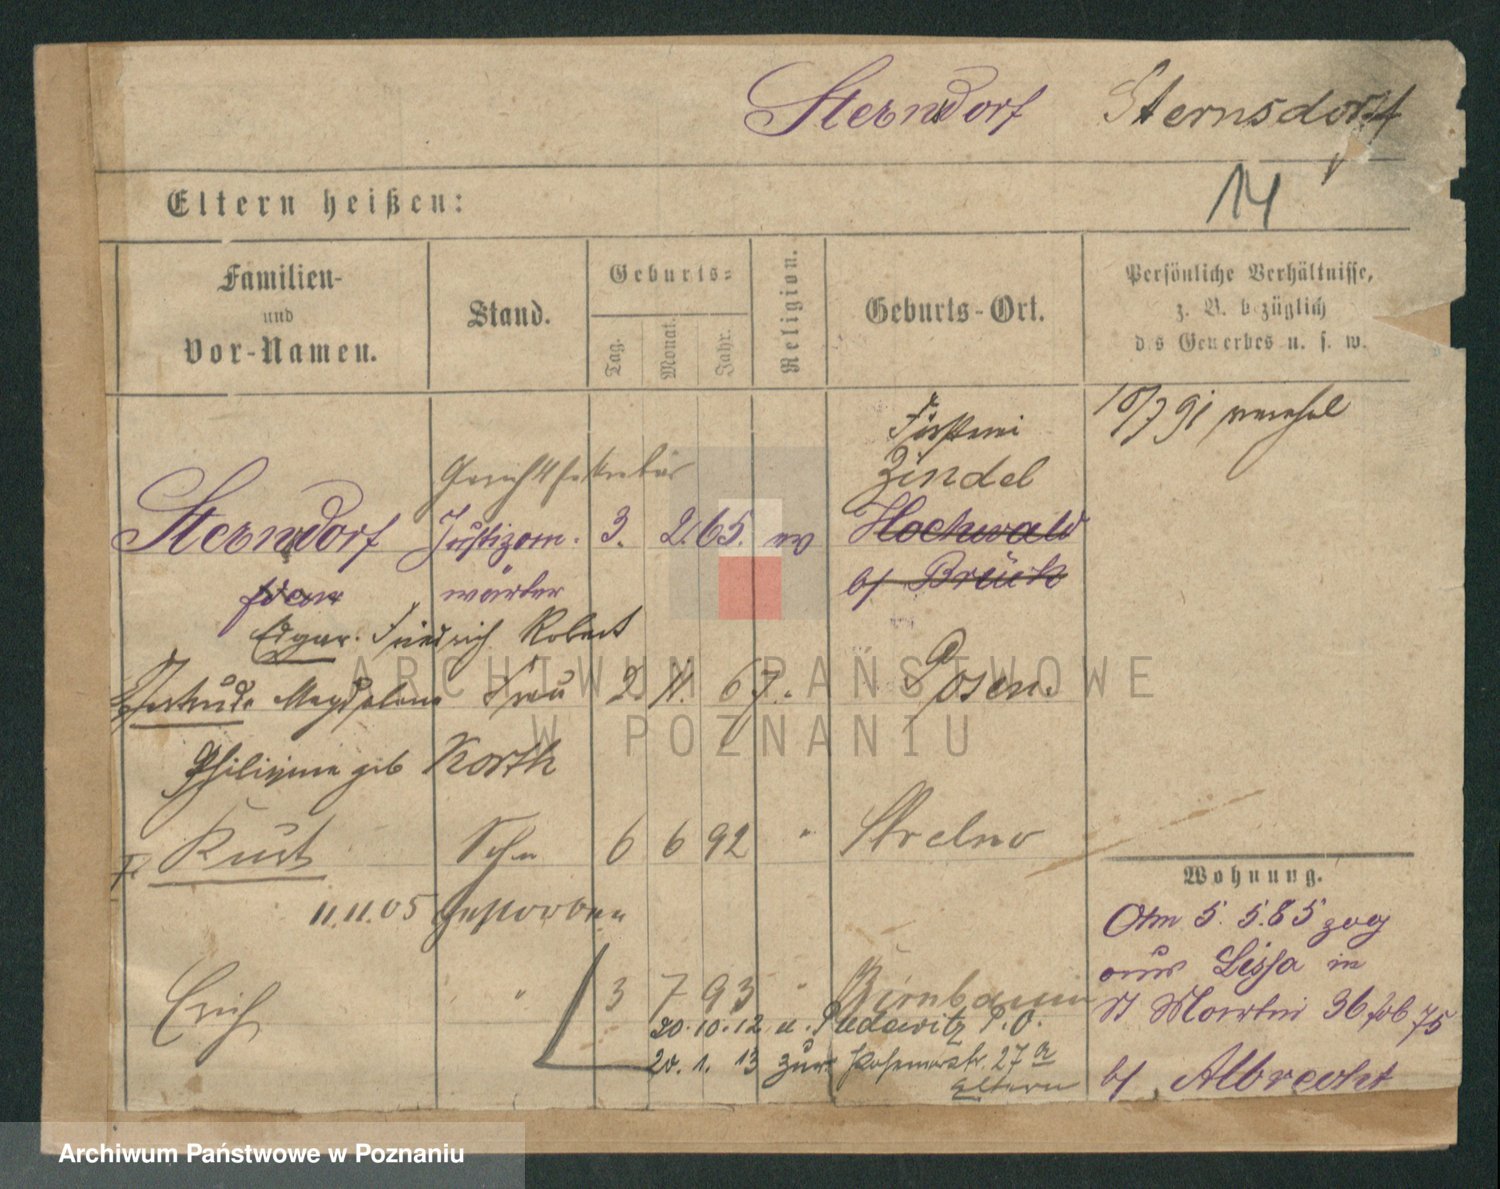 Sterndorf Sternsdorff
14
Eltern heißen:
Familien-
und
Vor-Namen.
Stand.
Geburts-
Tag.
Monat.
Jahr.
Religion.
Geburts-Ort.
Persönliche Verhältnisse,
z. B. bezüglich
des Gewerbes u. s. w.
10/7 91
Försterei
Gerichtssekretär Zindel
Sterndorf Justizan- 3. 2. 65. ev Hochwald
wärter b/ Brück
Edgar Friedrich Robert
Gertrude Magdalena Frau 2. 11. 67. Posen.
Philippine geb Korth
Kurt Sohn 6 6 92 " Strelno
11.11.05 gestorben
Erich " 3 7 93 " Birnbaum
20. 10. 12 u. Pudewitz P. O.
20. 1. 13 zur Posenerstr. 27 a
Eltern
Wohnung.
Am 5. 5. 85 zog
aus Lissa in
St Martin 36 75
b/ Albrecht
ARCHIWUM PAŃSTWOWE
W POZNANIU
Archiwum Państwowe w Poznaniu